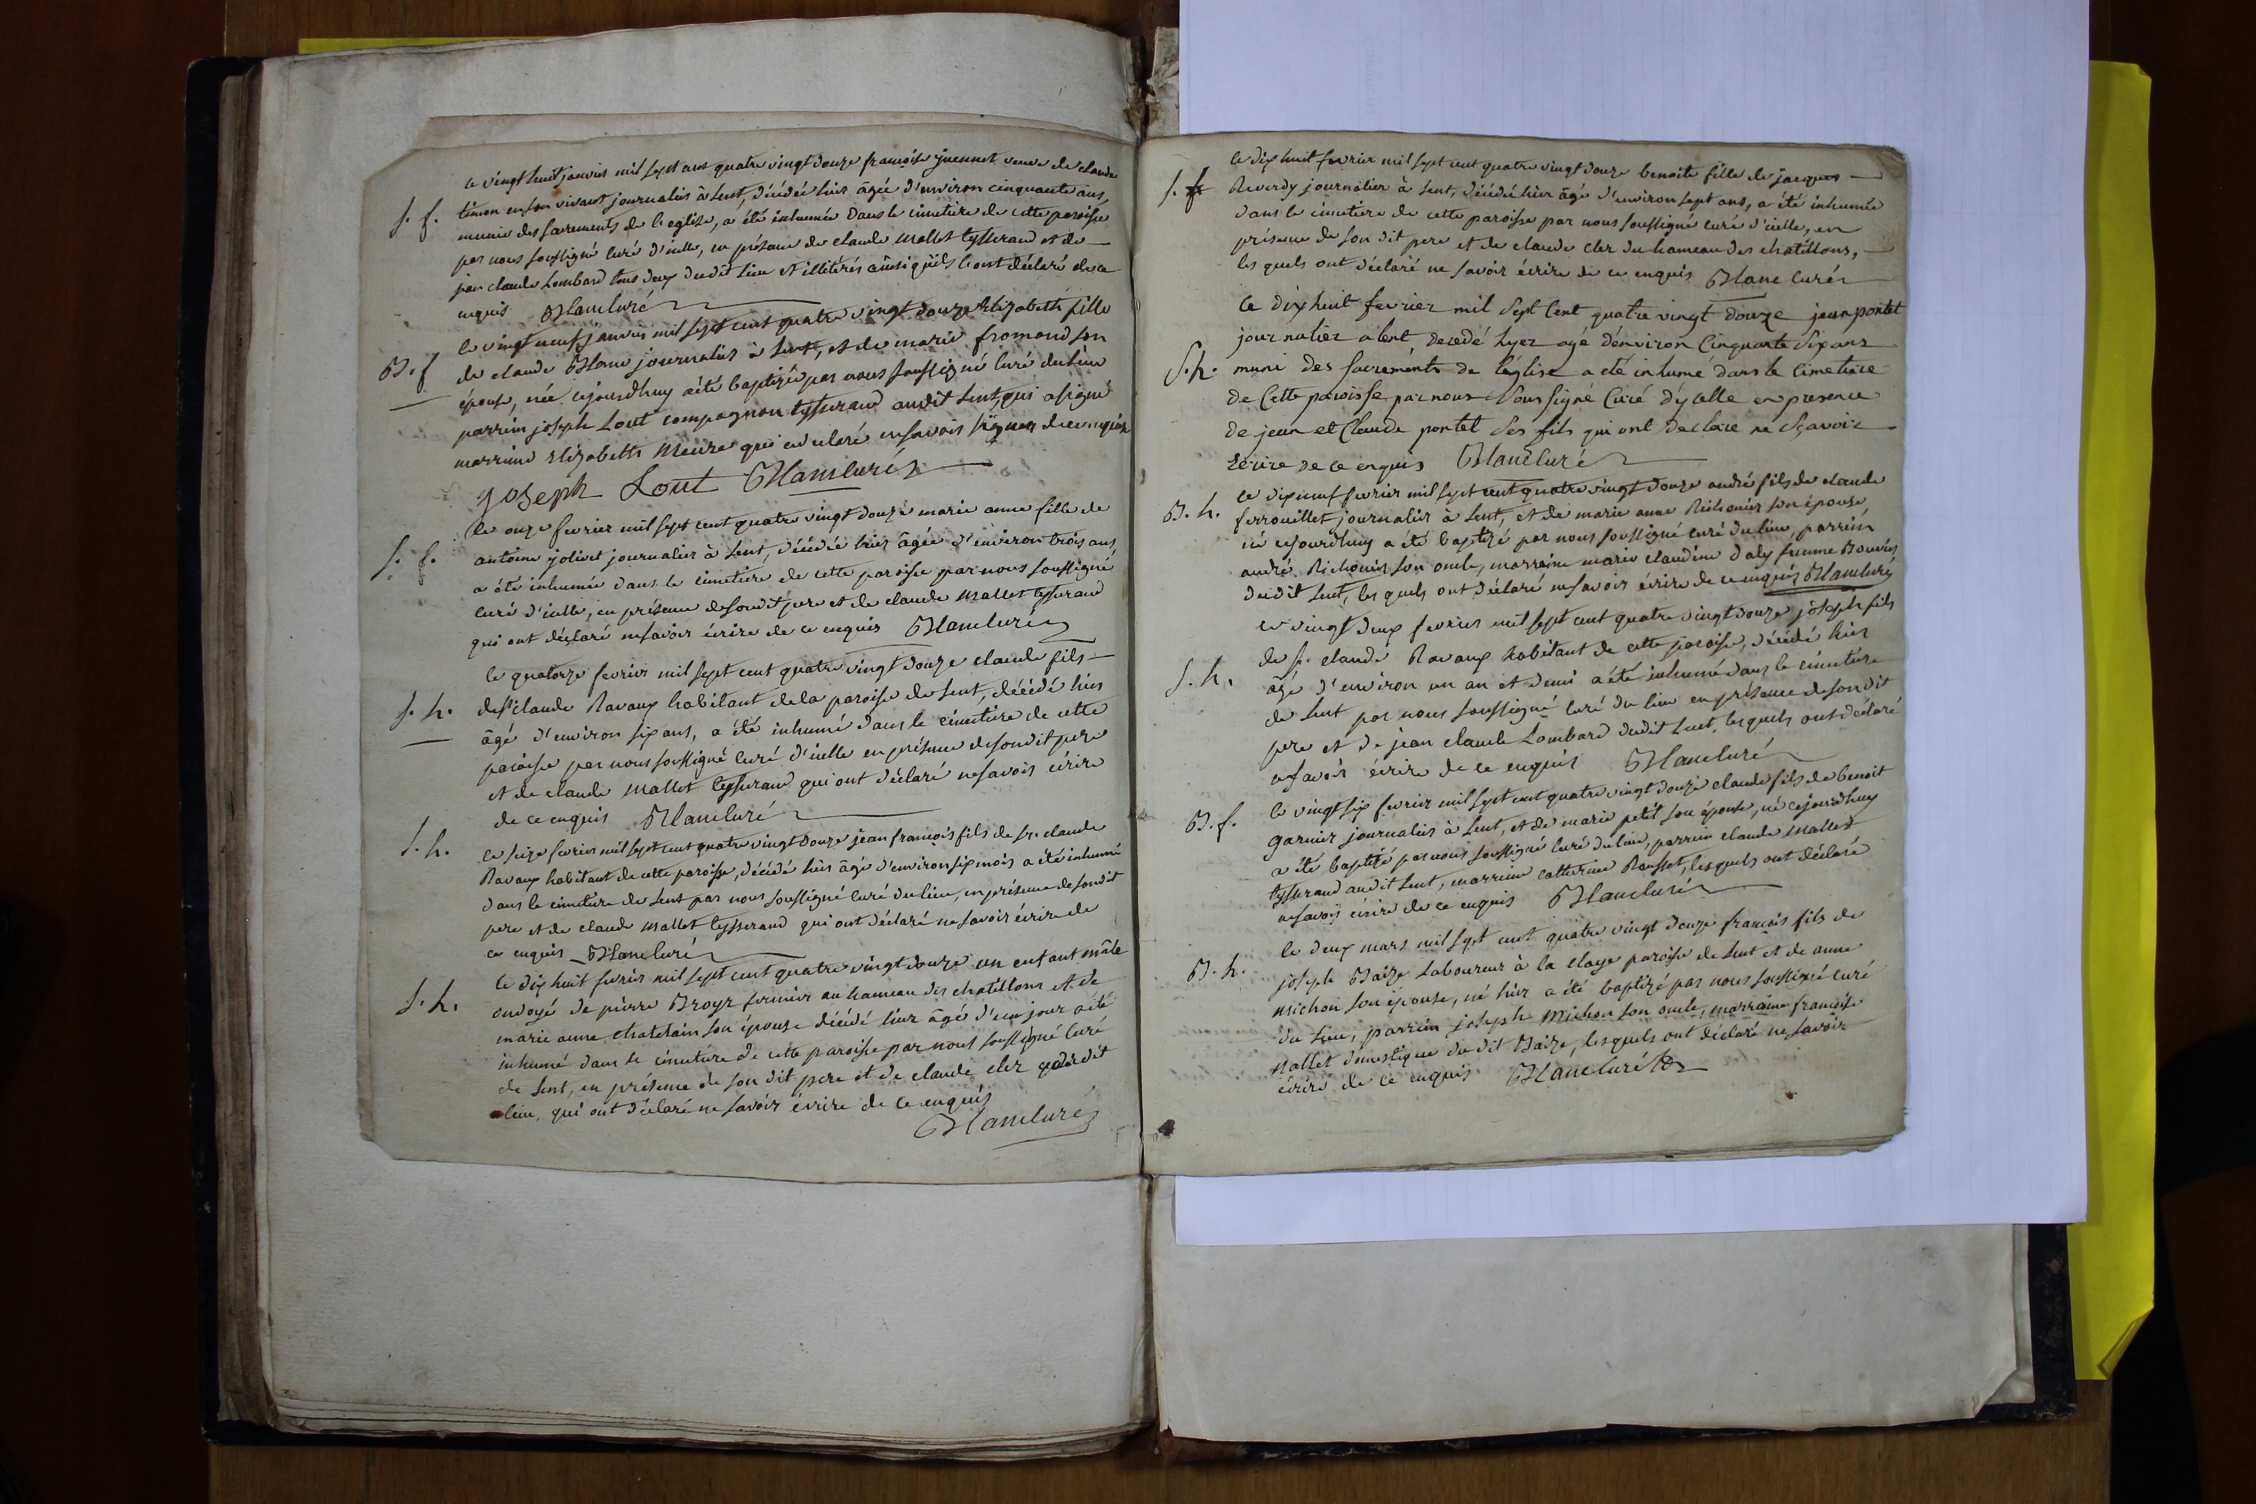 le vingt huit janvier mil sept cent quatre vingt douze françoise juennet veuve de claude
s. f. timon en son vivant journalier à Lent, décédée hier âgée d'environ cinquante ans,
munie des sacrements de l'eglise, a été inhumée dans le cimetiere de cette paroisse
par nous soussigné curé d'icelle, en présence de claude mallet tysserand et de
jean claude Lombard tous deux dudit lieu et illitérés ainsi qu'ils l'ont déclaré de ce
enquis Blanc curé
B. f le vingt neuf janvier mil sept cent quatre vingt douze Elizabeth fille
de claude Blanc journalier à Lent, et de marie fromond son
épouse, née cejourd'huy a été baptizée par nous soussigné curé du lieu
parrein joseph Lout compagnon tysserand audit Lent qui a signé
marreine Elizabeth meure qui a déclaré ne savoir signer de ce enquise
Joseph Lout Blanc curé
le onze fevrier mil sept cent quatre vingt douze marie anne fille de
s. f. antoine jolivet journalier à Lent, décédée hier âgée d'environ trois ans
a été inhumée dans le cimetiere de cette paroisse par nous soussigné
curé d'icelle, en présence de son dit pere et de claude mallet tysserand
qui ont déclaré ne savoir écrire de ce enquis Blanc curé
le quatorze fevrier mil sept cent quatre vingt douze claude fils
s. h. de sr claude Ravaux habitant de la paroisse de Lent, décédé hier
âgé d'environ six ans, a été inhumé dans le cimetiere de cette
paroisse par nous soussigné curé d'icelle en présence de son dit pere
et de claude mallet tysserand qui ont déclaré ne savoir écrire
de ce enquis Blanc curé
s. h. le seize fevrier mil sept cent quatre vingt douze jean françois fils de sr. claude
Ravaux habitant de cette paroisse, décédé hier âgé d'environ six mois a été inhumé
dans le cimetiere de Lent par nous soussigné curé du lieu, en présence de son dit
pere et de claude mallet tysserand qui ont déclaré ne savoir écrire de
ce enquis Blanc curé
le dix huit fevrier mil sept cent quatre vingt douze un enfant mâle
s. h. ondoyé de pierre Broyr fermier au hameau des chatillons et de
marie anne chatelain son épouse décédé hier âgé d'un jour a été
inhumé dans le cimetiere de cette paroisse par nous soussigné curé
de Lent, en présence de son dit pere et de claude clez dudit
lieu, qui ont déclaré ne savoir écrire de ce enquis
Blanc curé
le dix huit fevrier mil sept cent quatre vingt douze benoite fille de jacques
s. f. Reverdy journalier à Lent, décédé hier âgé d'environ sept ans, a été inhumée
dans le cimetiere de cette paroisse par nous soussigné curé d'icelle, en
présence de son dit pere et de claude clez du hameau des chatillons,
les quels ont déclaré ne savoir écrire de ce enquis Blanc curé
Le dix huit fevrier mil sept Cent quatre vingt douze jean pontet
journalier a lent decedé hyer agé d'environ Cinquante six ans
S. h. muni des sacréments de l'église a été inhumé dans le Cimetiere
de Cette paroisse par nous Soussigné Curé d'ycelle en presence
de jean et Claude pontet ses fils qui ont déclaré ne sçavoir
ecrire de ce enquis Blanc curé
le dix neuf fevrier mil sept cent quatre vingt douze andré fils de claude
B. h. ferrouillet journalier à Lent, et de marie anne Richonier son épouse
né cejourd'huy a été baptizé par nous soussigné curé du lieu, parrein
andré Richonier son oncle, marreine marie claudine daly femme Bouvier
dudit Lent, les quels ont déclaré ne savoir écrire de ce enquis Blanc curé
le vingt deux fevrier mil sept cent quatre vingt douze joseph fils
de sr. claude Ravaux habitant de cette paroisse, décédé hier
s. h. âgé d'environ un an et demi a été inhumé dans le cimetiere
de Lent par nous soussigné curé du lieu en présence de son dit
pere et de jean claude Lombard dudit Lent, lesquels ont déclaré
ne savoir écrire de ce enquis Blanc curé
le vingt six fevrier mil sept cent quatre vingt douze claude fils de benoit
B. f. garnier journalier à Lent, et de marie petit son épouse, né cejourd'huy
a été baptizé par nous soussigné curé du lieu, parrein claude mallet
tysserand audit Lent, marreine catherine Rousset, lesquels ont déclaré
ne savoir écrire de ce enquis Blanc curé
le deux mars mil sept cent quatre vingt douze françois fils de
B. h. joseph Baize Laboureur à la claye paroisse de Lent et de anne
michon son épouse, né hier a été baptizé par nous soussigné curé
du lieu, parrein joseph michon son oncle, marraine françoise
mallet domestique du dit Baize, lesquels ont déclaré ne savoir
écrire de ce enquis Blanc curé